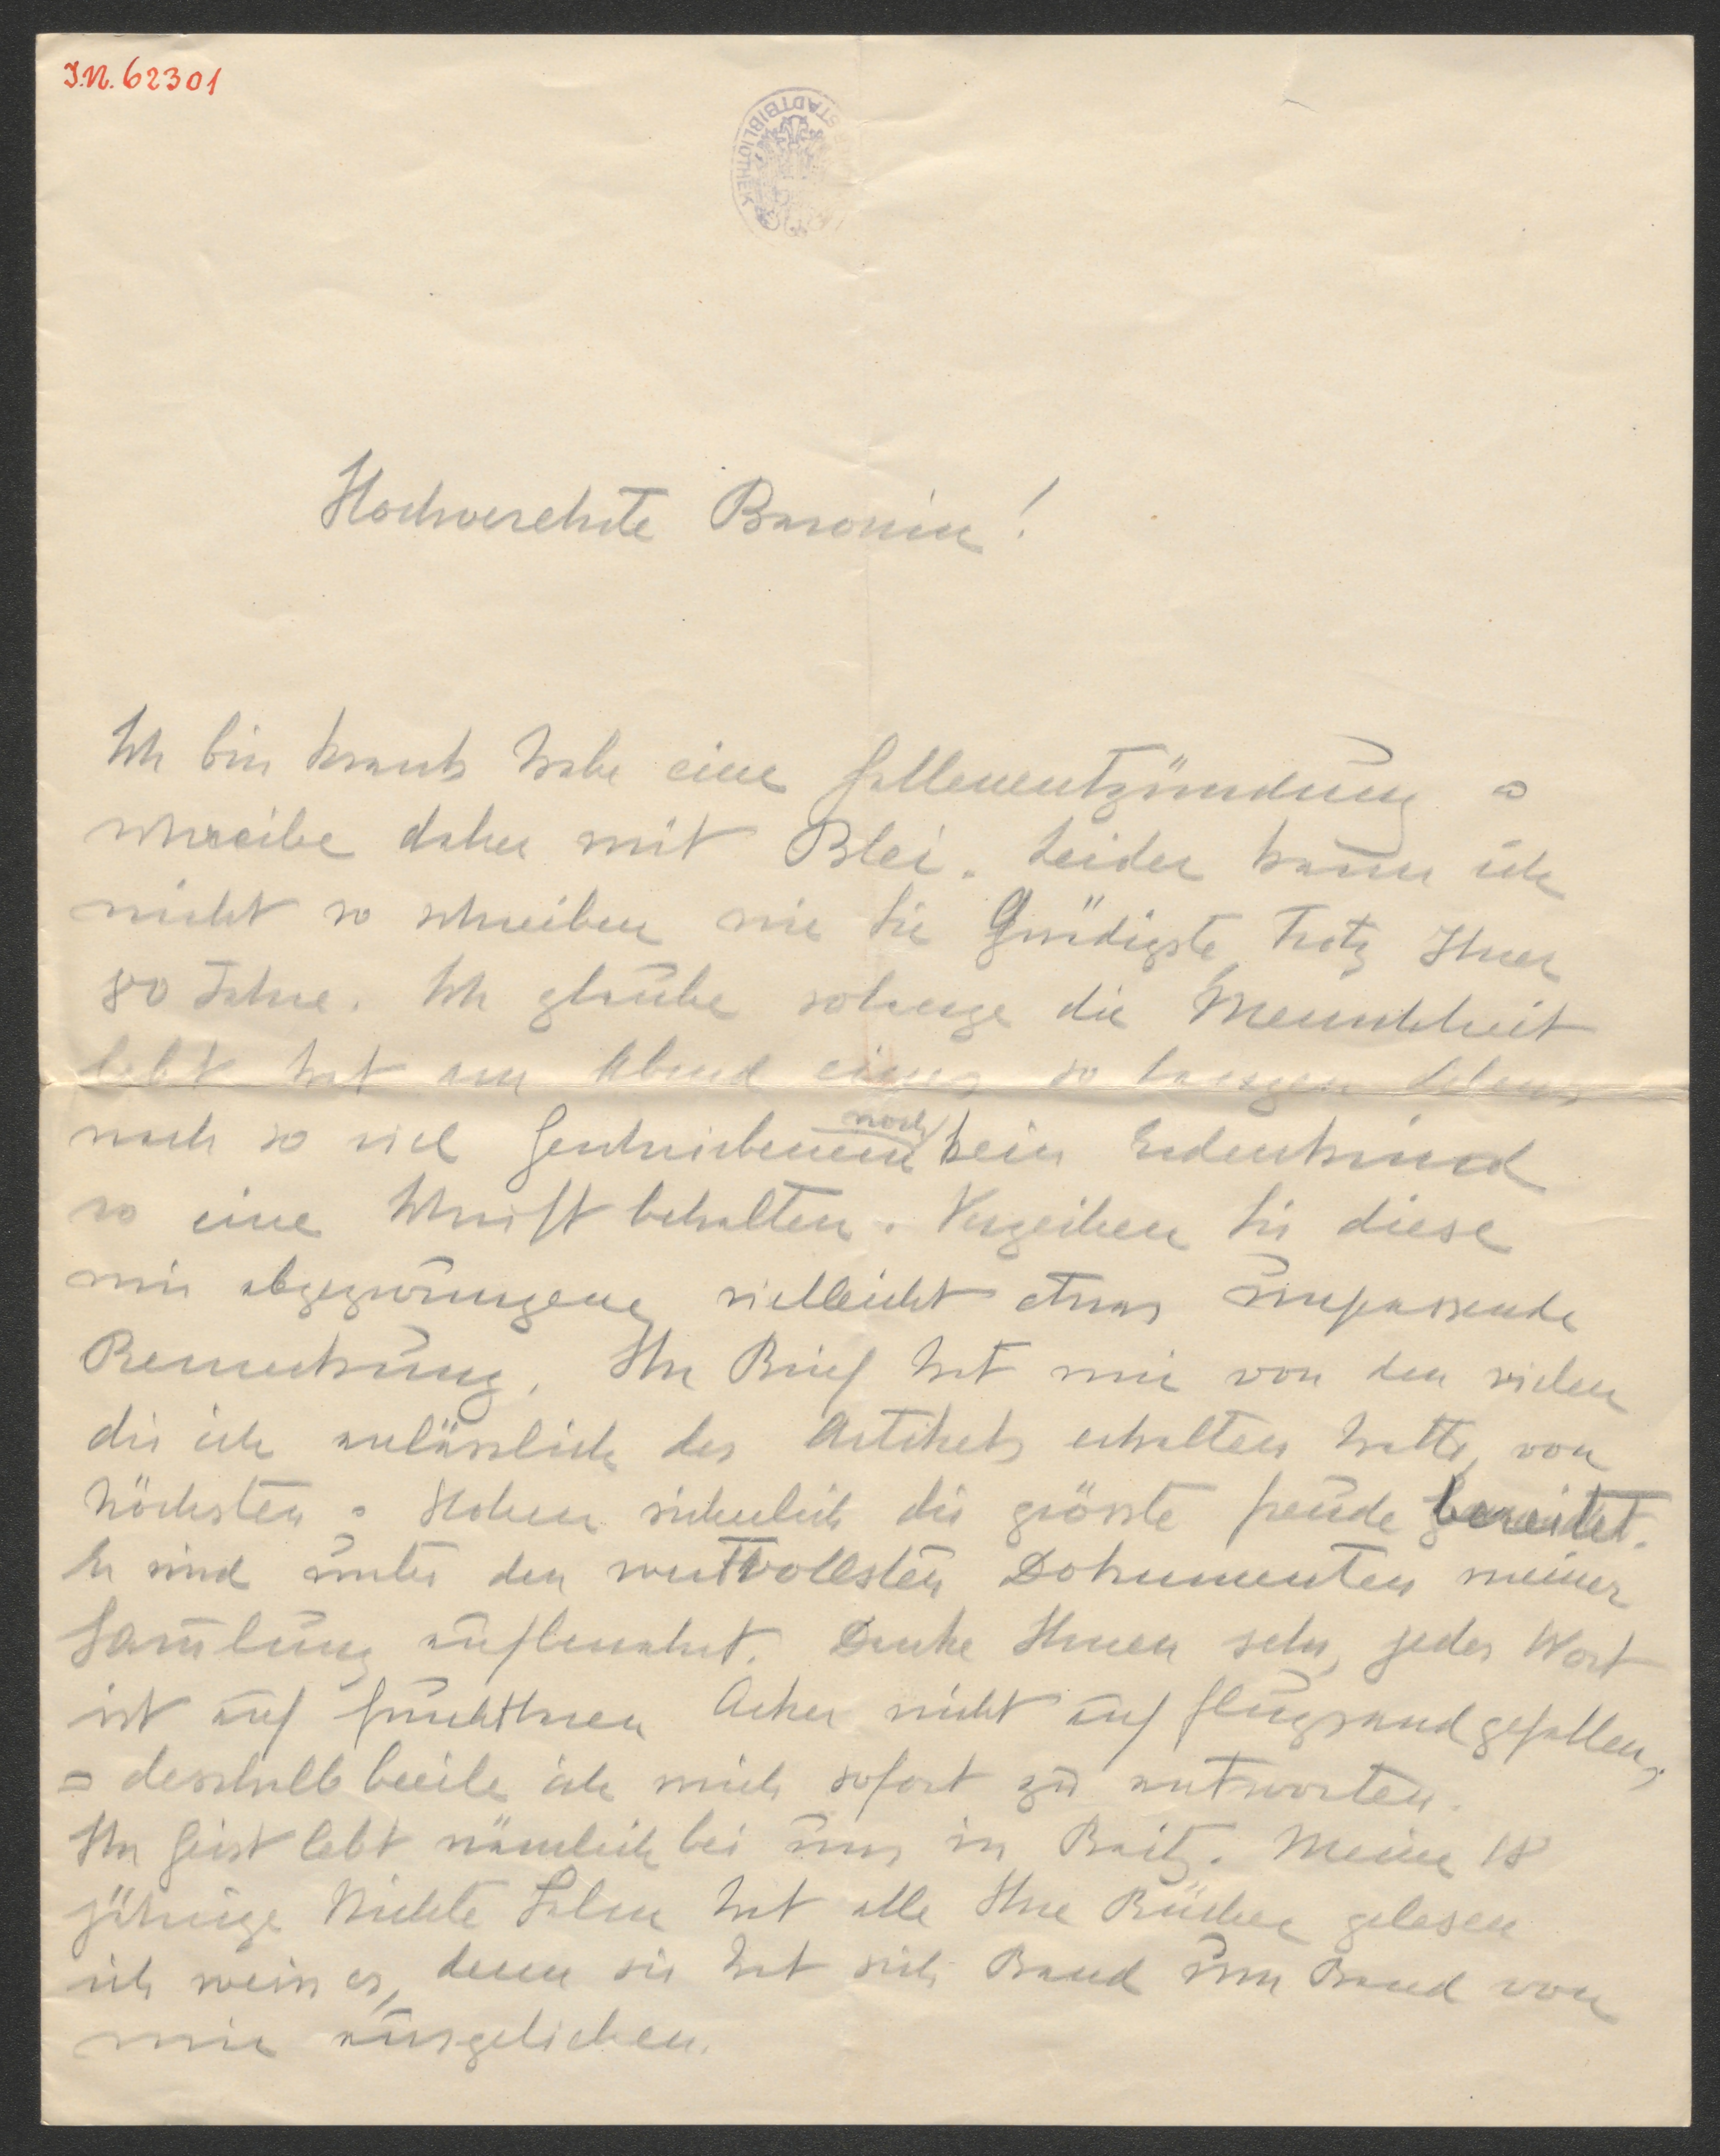 I.N. 62301
STADTBIBLIOTHEK
Hochverehrte Baronin!
Ich bin krank habe eine Gallenentzündung &
schreibe daher mit Blei. Leider kann ich
nicht so schreiben wie Sie Gnädigste, trotz Ihrer
80 Jahre. Ich glaube solange die Menschheit
lebt hat am Abend eines so langen Lebens
nach so viel Geschriebenem noch kein Erdenkind
so eine Schrift behalten. Verzeihen Sie diese
mir abgezwungene vielleicht etwas unpassende
Bemerkung. Ihr Brief hat mir von den vielen
die ich anlässlich des Artikels erhalten hatte, von
Höchsten & Hohen sicherlich die grösste Freude bereitet.
Er wird unter den wertvollsten Dokumenten meiner
Samlung aufbewahrt. Danke Ihnen sehr, jedes Wort
ist auf fruchtbaren Acker nicht auf Flugsand gefallen,
& desshalb beeile ich mich sofort zu antworten.
Ihr Geist lebt nämlich bei uns in Raitz. Meine 18
jährige Nichte Salm hat alle Ihre Bücher gelesen
ich weis es, denn sie hat sich Band um Band von
mir ausgeliehen.